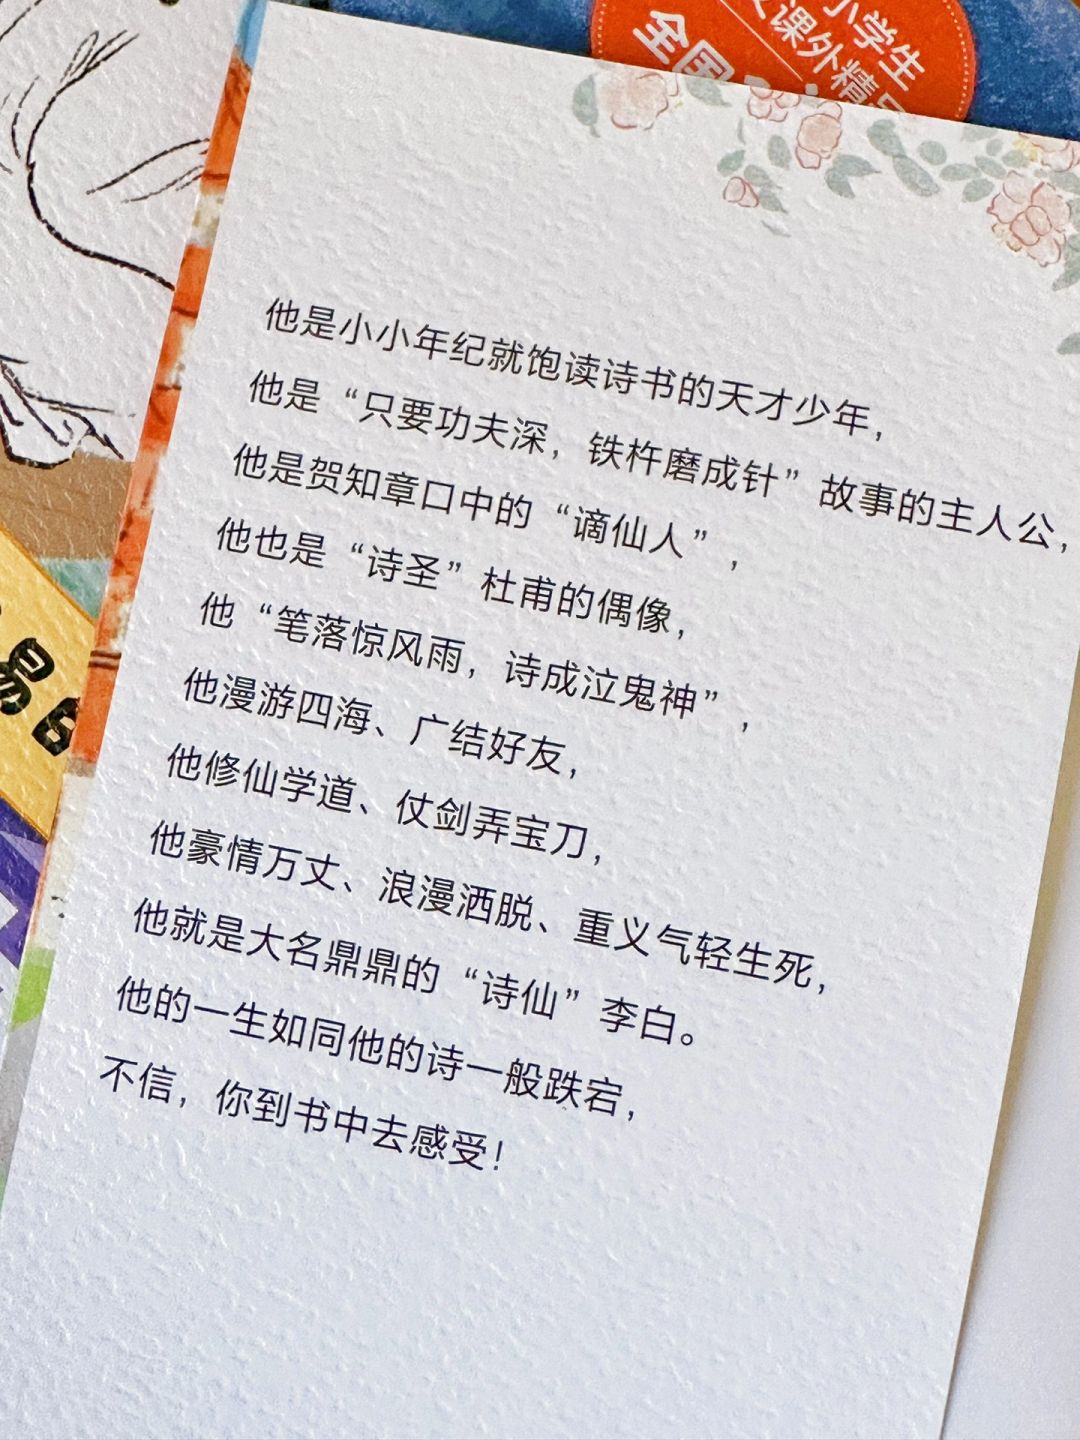 小学生
课外精
全国
他是小小年纪就饱读诗书的天才少年，
他是“只要功夫深，铁杵磨成针”故事的主人公，
他是贺知章口中的“谪仙人”，
他也是“诗圣”杜甫的偶像，
他“笔落惊风雨，诗成泣鬼神”，
他漫游四海、广结好友，
他修仙学道、仗剑弄宝刀，
他豪情万丈、浪漫洒脱、重义气轻生死，
他就是大名鼎鼎的“诗仙”李白。
他的一生如同他的诗一般跌宕，
不信，你到书中去感受！
易